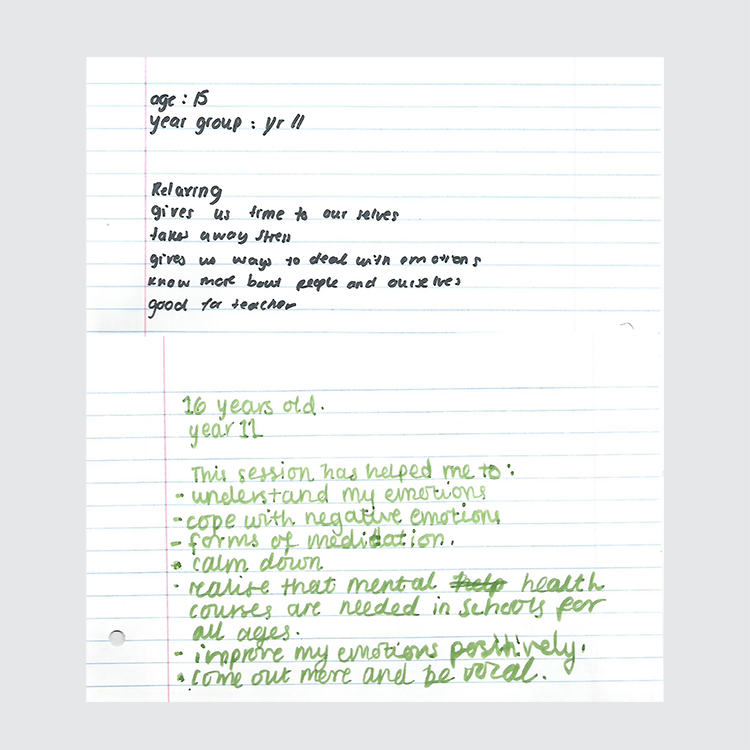 age : 15
year group : yr 11
Relaxing
gives us time to our selves
takes away stress
gives us ways to deal with emotions
know more bout people and ourselves
good for teacher
16 years old.
year 11
This session has helped me to:
- understand my emotions
- cope with negative emotions
- forms of meditation.
• calm down
- realise that mental help health
courses are needed in schools for
all ages.
- improve my emotions positively.
• come out more and be vocal.